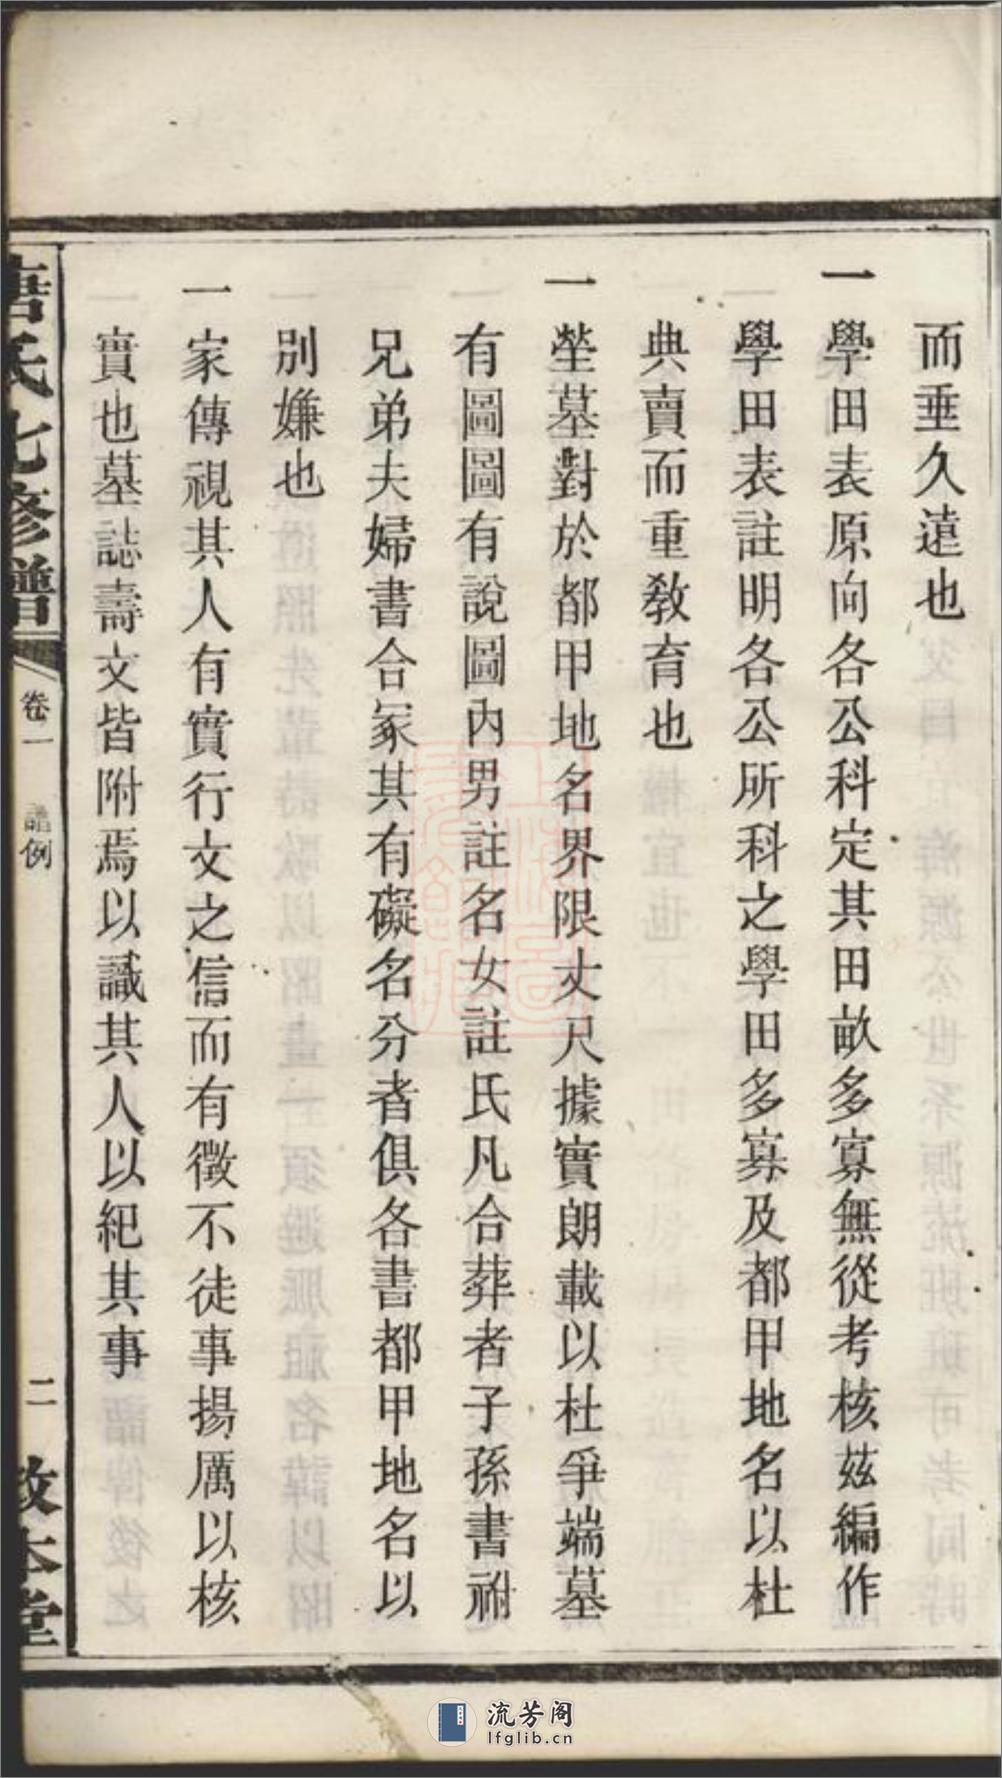 而垂久遠也
一學田表原向各公科定其田畝多寡無從考核茲編作
學田表註明各公所科之學田多寡及都甲地名以杜
典賣而重教育也
一塋墓對於都甲地名界限丈尺據實朗載以杜爭端墓
有圖圖有說圖內男註名女註氏凡合葬者子孫書祔
兄弟夫婦書合冢其有礙名分者俱各書都甲地名以
別嫌也
一家傳視其人有實行文之信而有徵不徒事揚厲以核
實也墓誌壽文皆附焉以識其人以紀其事
唐氏七修譜
卷一
譜例
二
敦本堂
流芳阁
lfglib.cn